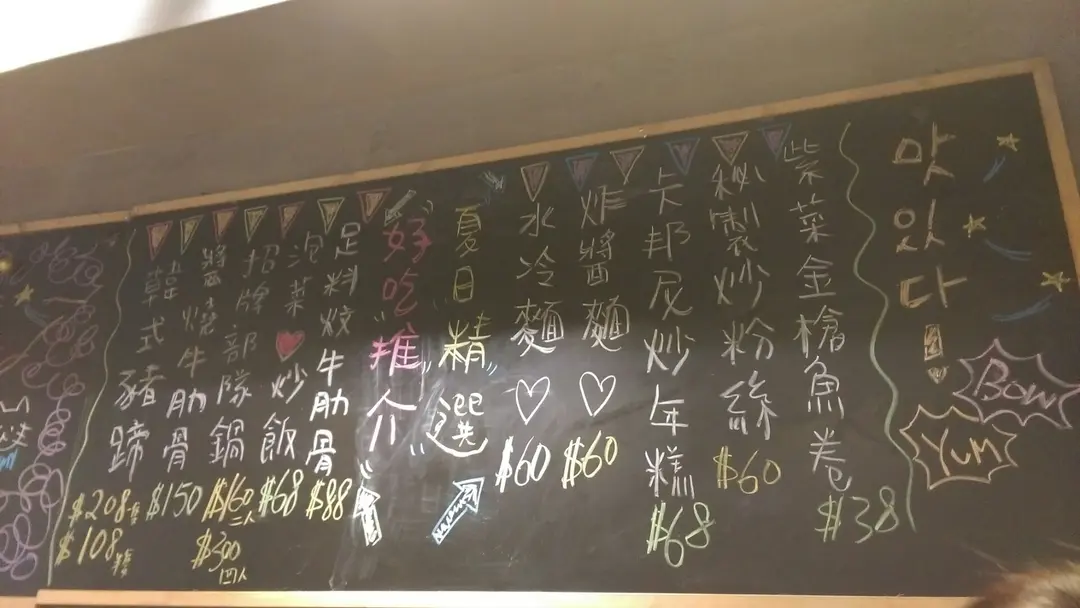 맛있다!
BOW
YUM
紫菜金槍魚卷
$38
秘製炒粉絲
$60
卡邦尼炒年糕
$68
炸醬麵♡
$60
水冷麵♡
$60
夏日精選
好吃推介
足料炆牛肋骨
$88
泡菜♥炒飯
$68
招牌部隊鍋
$160 二人
$300 四人
醬燒牛肋骨
$150
韓式豬蹄
$208
$108